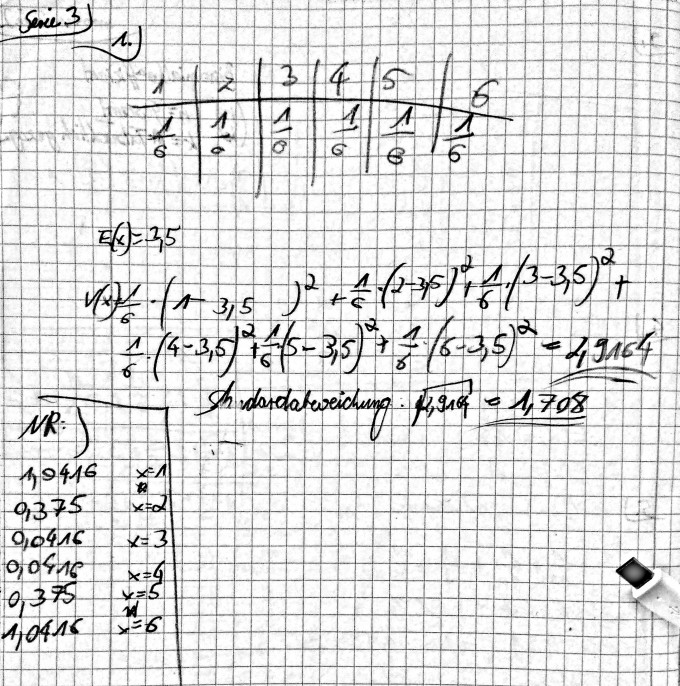 Serie 3)
1.)
1 2 3 4 5 6
1/6 1/6 1/6 1/6 1/6 1/6
E(x)=3,5
V(x)=1/6·(1-3,5)² + 1/6·(2-3,5)²+1/6·(3-3,5)²+
1/6·(4-3,5)²+1/6(5-3,5)²+1/6·(6-3,5)² = 2,9164
Standardabweichung: √2,9164 = 1,708
NR:)
1,0416 x=1
0,375 x=2
0,0416 x=3
0,0416 x=4
0,375 x=5
1,0416 x=6